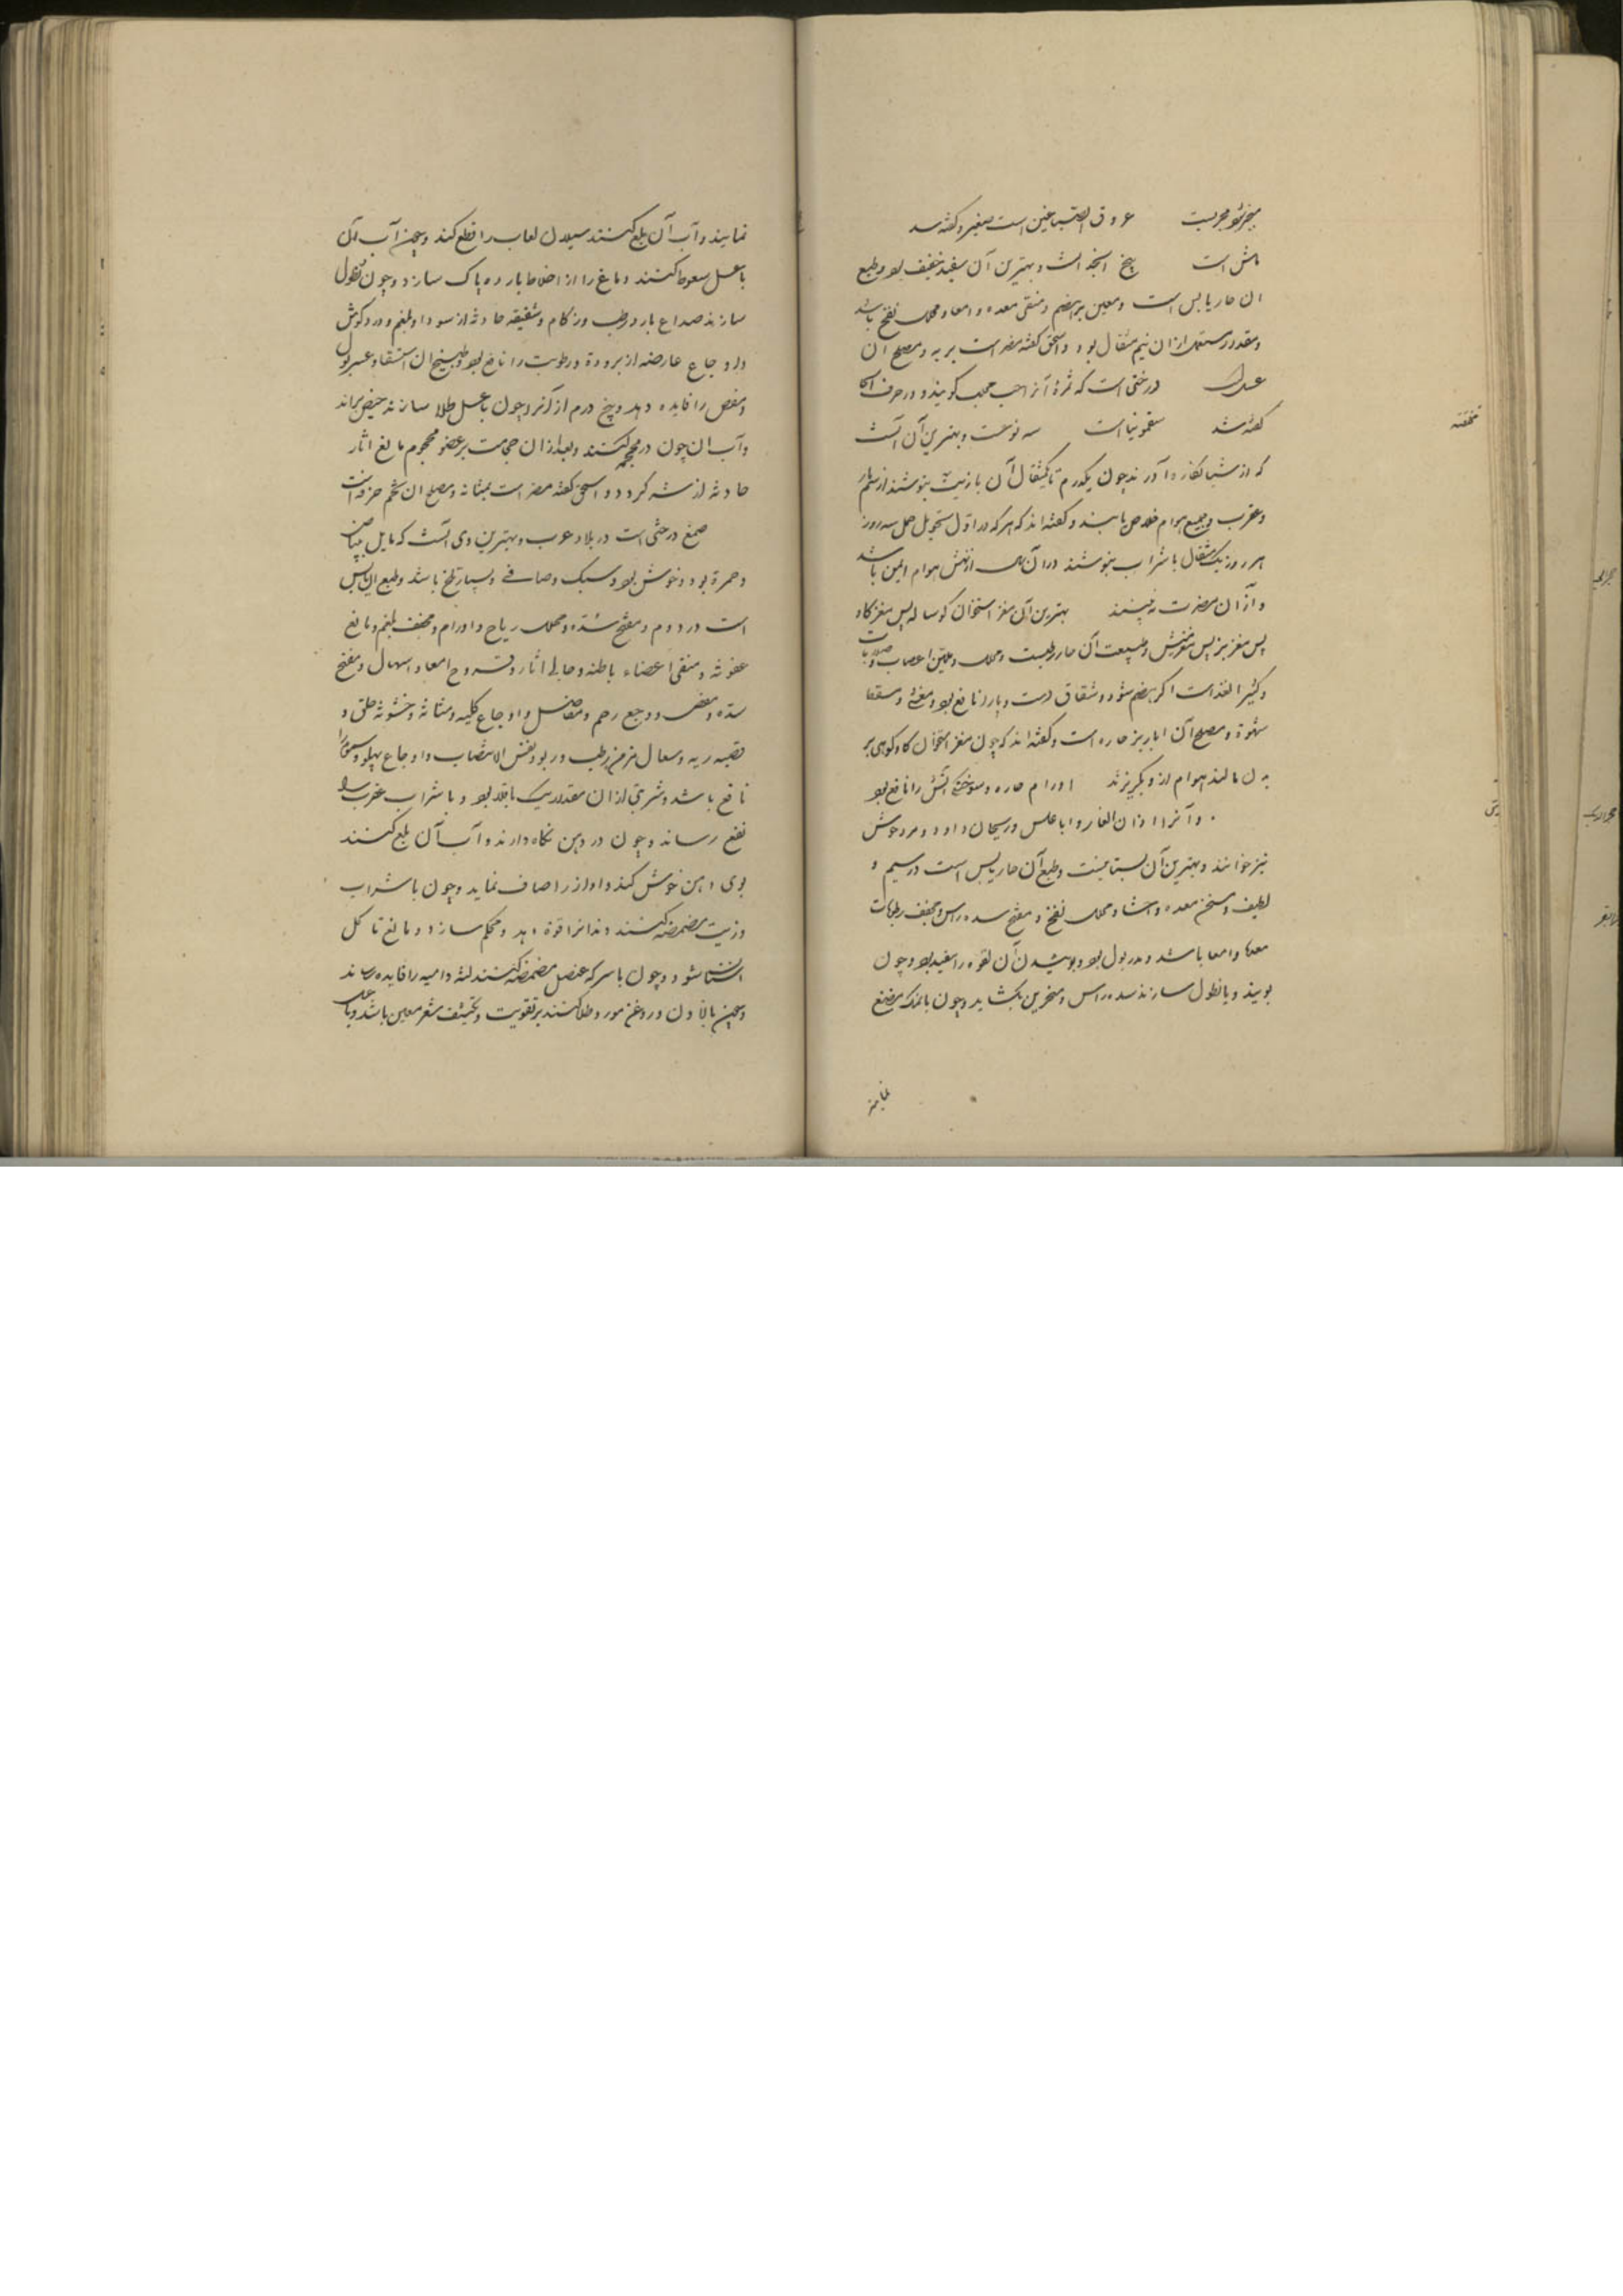 عروق الصباغین است صغیر و گفته شد
ماش است بیخ انجدانست و بهترین آن سفید خفیف بود و طبع
ان حار یابس است و معین بر هضم و منقی معده و امعا و محلل نفخ باشد
و مقدار مستعمل از ان نیم مثقال بود و اسحق گفته مضر است بریه و مصلح ان
عسل درختی است که ثمرهٔ آنرا حب محلب گویند و در حرف الحا
گفته شد سقمونیا است سه نوعست و بهترین آن آنست
که از آورند چون یکدرم تا یکمثقال آن با زیت بنوشند از سم مار
و عقرب و جمیع هوام خلاص یابند و گفته‌اند که هر که در اول تحویل حمل سه روز
هر روز یک مثقال با شراب بنوشند در آن سال از نهش هوام ایمن باشد
و از ان مضرت نه بینند بهترین آن مغز استخوان گوساله پس مغز گاو
پس مغز بز پس مغز میش و طبیعت آن حار رطبست و محلل و ملین اعصاب و صلابات
و کثیر الغذاست اگر هضم شود و شقاق دست و پا را نافع بود و مغثی و مسقط
شهوة و مصلح آن ابازیر حاره است و گفته‌اند که چون مغز استخوان گاو کوهی بر
بدن مالند هوام از و بگریزند اورام حاره و سوختگی آتش را نافع بود
و آنرا اذان الفار و اباغلس و ریحان داود و مردقوش
نیز خوانند و بهترین آن بستانیست و طبع آن حار یابس است در سیم و
لطیف و مسخن معده و احشا و محلل نفخ و مفتح سده راس و مجفف رطوبات
معده و امعا باشد و مدر بول بود و بوئیدن آن لقوه را مفید بود و چون
بویند و یا نطول سازند سده راس و منخرین بکشاید و چون با نمک مضغ
نمایند
نمایند و آب آن بلع کنند سیلان لعاب را قطع کند و چون آب آن
با عسل سعوط کنند دماغ را از اخلاط بارده پاک سازد و چون نطول
سازند صداع بارد رطب و زکام و شقیقه حادثه از سودا و بلغم و درد گوش
و اوجاع عارضه از برودة و رطوبت را نافع بود و طبیخ ان استسقا و عسر بول
و مغص را فایده دهد و بیخ درم از آنرا چون با عسل طلا سازند حیض براند
و آب ان چون در محجمه کنند و بعد از ان حجامت بر عضو محجوم مانع اثار
حادثه از شرط گردد و اسحق گفته مضر است بمثانه و مصلح ان تخم خرفه است
صمغ درختی است در بلاد عرب و بهترین وی آنست که مایل ببیاض
و حمرة بود و خوش بو و سبک و صافی و بسیار تلخ باشد و طبع ان یابس
است در دوم و مفتح سده و محلل ریاح و اورام و مجفف بلغم و مانع
عفونه و منقی اعضاء باطنه و جالی اثار و قروح امعا و اسهال و مفتح
سده و مغص و وجع رحم و مفاصل و اوجاع کلیه و مثانه و خشونه حلق و
قصبه ریه و سعال مزمن رطب و ربو و نفس الانتصاب و اوجاع پهلو و سموم را
نافع باشد و شربتی از ان مقدار یک باقلا بود و با شراب عقرب را
نفع رساند و چون در دهن نگاه دارند و آب آن بلع کنند
بوی دهن خوش کند و اواز را صاف نماید و چون با شراب
و زیت مضمضه کنند دندانرا قوة دهد و محکم سازد و مانع تاکل
اسنان شود و چون با سرکه عنصل مضمضه کنند لثه دامیه را فایده رساند
و چون با لاذن و روغن مورد طلا کنند بر تقویت و تکثیف شعر معین باشد و با عسل